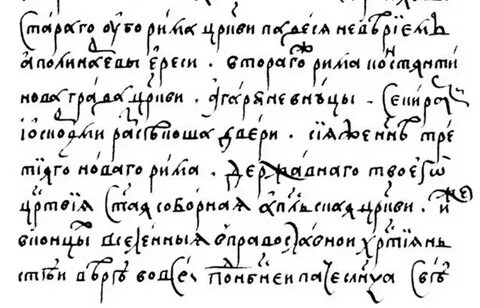 Стараго оубо рима цр҃кви падесѧ невѣрїемъ
аполинаевы ереси . втораго рима констѧнти
нова града цр҃кви . агарѧне внѹцы . секира
і оскордми расѣкоша двери . сіѧ же нн҃ѣ тре
тіѧго новаго рима . державнаго твоегѡ
цр҃твїѧ ст҃аѧ соборнаѧ ап҃льскаѧ цр҃кви . иже
в концы вселенныѧ в православной хр҃тіѧнь
стѣи вѣрѣ во все поднб҃нѣи паче слнца свѣ